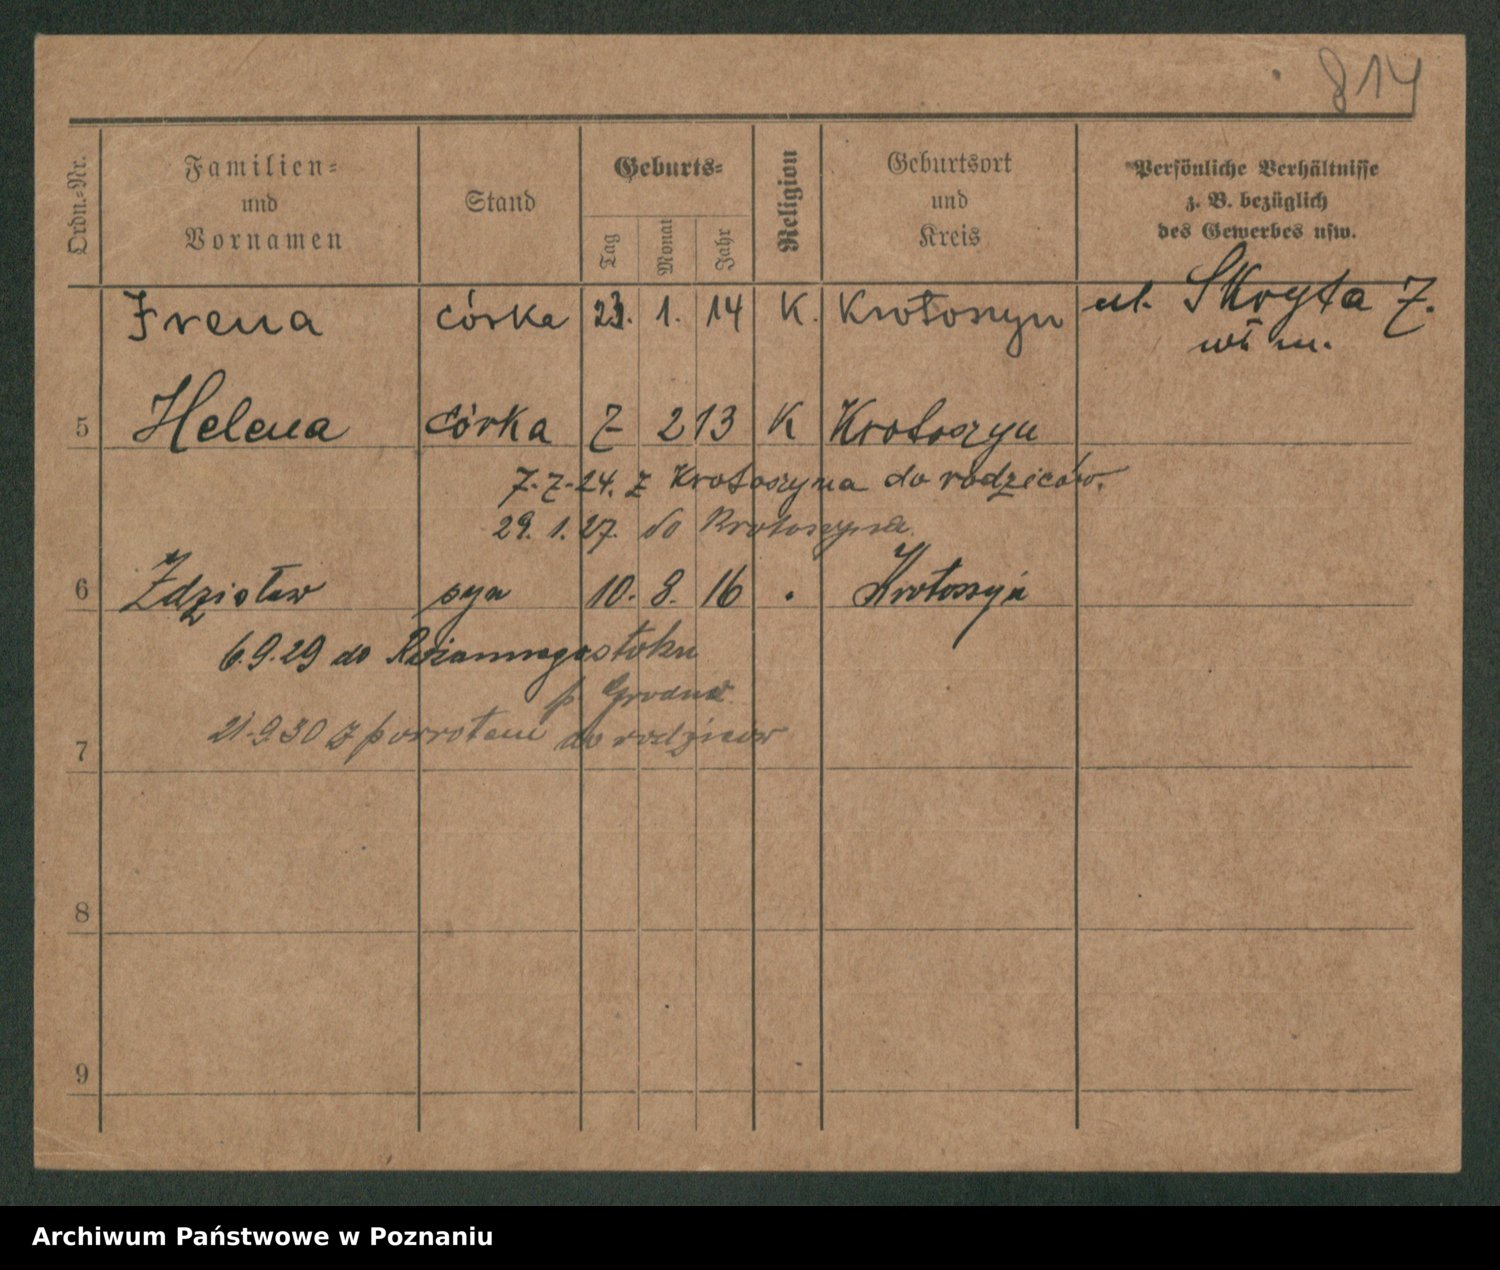 814
Ordn.-Nr.
Familien-
und
Vornamen
Stand
Geburts-
Tag
Monat
Jahr
Religion
Geburtsort
und
Kreis
Persönliche Verhältnisse
z. B. bezüglich
des Gewerbes usw.
Irena córka 23. 1. 14 K. Krotoszyn ul. Skryta 7.
wł m.
5 Helena córka 7 2 13 K Krotoszyn
7.7.24. z Krotoszyna do rodziców.
29. 1. 27. do Krotoszyna.
6 Zdzisław syn 10. 8. 16 Krotoszyn
6.9.29 do
p. Grodna
21.9.30 z powrotem do rodziców
7
8
9
Archiwum Państwowe w Poznaniu